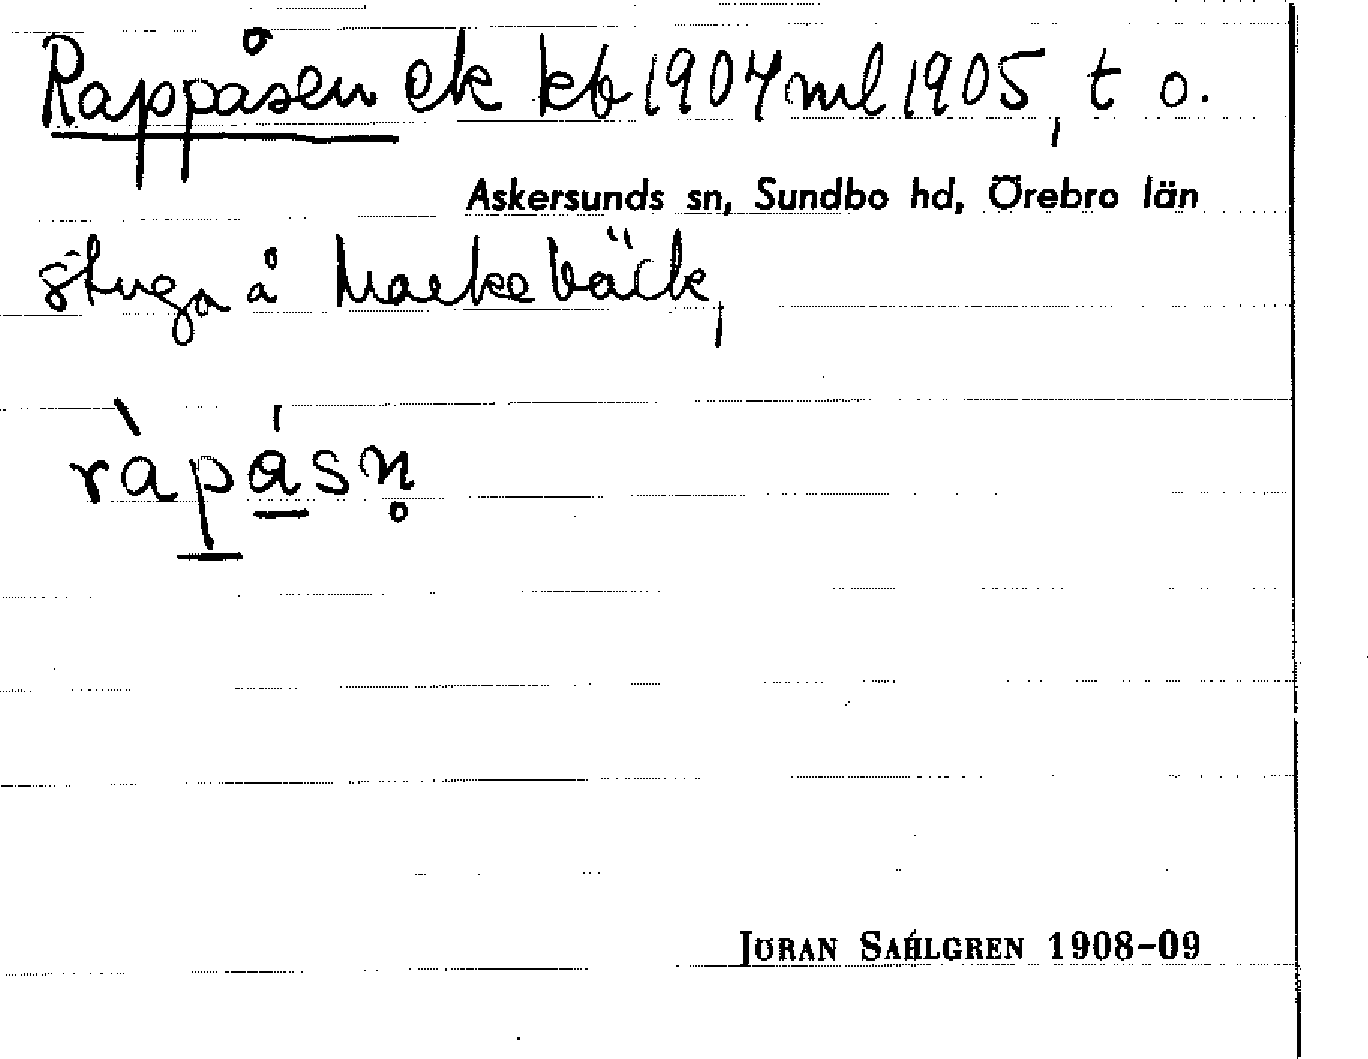 Rappåsen ek kb 1904 ml 1905, t o.
Askersunds sn, Sundbo hd, Örebro län
stuga å Markebäck,
ràpásn̥
JÖRAN SAHLGREN 1908-09